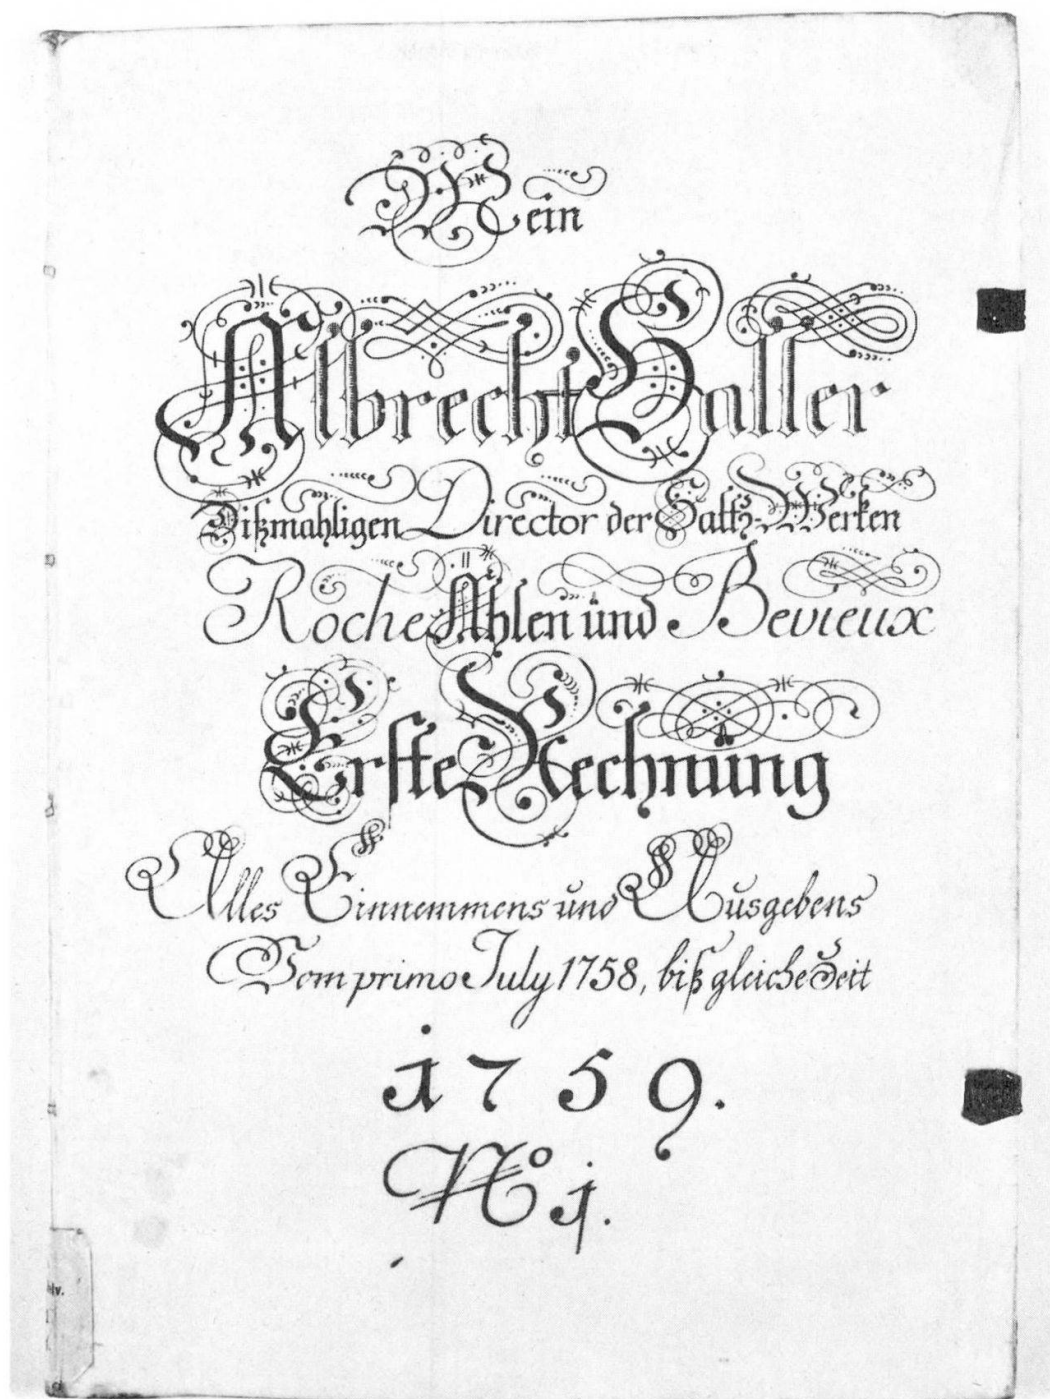 Mein
Albrecht Haller
Dißmahligen Director der Saltz-Werken
Roche Ählen ünd Bevieux
Erste Rechnüng
Alles Einnemmens und Ausgebens
Vom primo July 1758, biß gleiche Zeit
1759.
No 1.